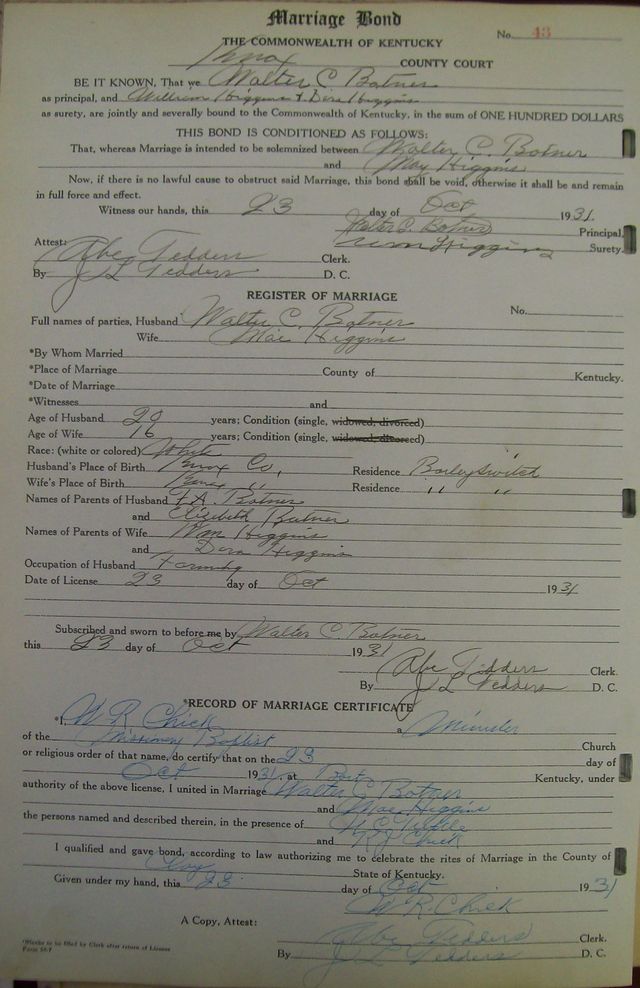 Marriage Bond
No. 43
THE COMMONWEALTH OF KENTUCKY
Knox COUNTY COURT
BE IT KNOWN, That we Walter C Botner
as principal, and William Higgins & Dora Higgins
as surety, are jointly and severally bound to the Commonwealth of Kentucky, in the sum of ONE HUNDRED DOLLARS
THIS BOND IS CONDITIONED AS FOLLOWS:
That, whereas Marriage is intended to be solemnized between Walter C. Botner
and May Higgins
Now, if there is no lawful cause to obstruct said Marriage, this bond shall be void, otherwise it shall be and remain
in full force and effect.
Witness our hands, this 23 day of Oct 1931.
Walter C. Botner Principal
Wm Higgins Surety.
Attest:
Abe Tedders Clerk.
By J L Tedders D. C.
REGISTER OF MARRIAGE
No.
Full names of parties, Husband Walter C. Botner
Wife Mae Higgins
*By Whom Married
*Place of Marriage County of Kentucky.
*Date of Marriage
*Witnesses and
Age of Husband 20 years; Condition (single, widowed, divorced)
Age of Wife 16 years; Condition (single, widowed, divorced)
Race: (white or colored) White
Husband's Place of Birth Knox Co, Residence Baileyswitch
Wife's Place of Birth Knox " Residence " "
Names of Parents of Husband F.A. Botner
and Elizabeth Botner
Names of Parents of Wife Wm Higgins
and Dora Higgins
Occupation of Husband Farming
Date of License 23 day of Oct 1931
Subscribed and sworn to before me by Walter C. Botner
this 23 day of Oct 1931
Abe Tedders Clerk.
By J L Tedders D. C.
*RECORD OF MARRIAGE CERTIFICATE
*I, W R Chick a Minister
of the Missionary Baptist Church
or religious order of that name, do certify that on the 23 day of
Oct 1931, at Kentucky, under
authority of the above license, I united in Marriage Walter C Botner
and Mae Higgins
the persons named and described therein, in the presence of
and Chick
I qualified and gave bond, according to law authorizing me to celebrate the rites of Marriage in the County of
Clay State of Kentucky.
Given under my hand, this 23 day of Oct 1931
W R. Chick
A Copy, Attest:
Abe Tedders Clerk.
By J L Tedders D. C.
*Blanks to be filled by Clerk after return of License